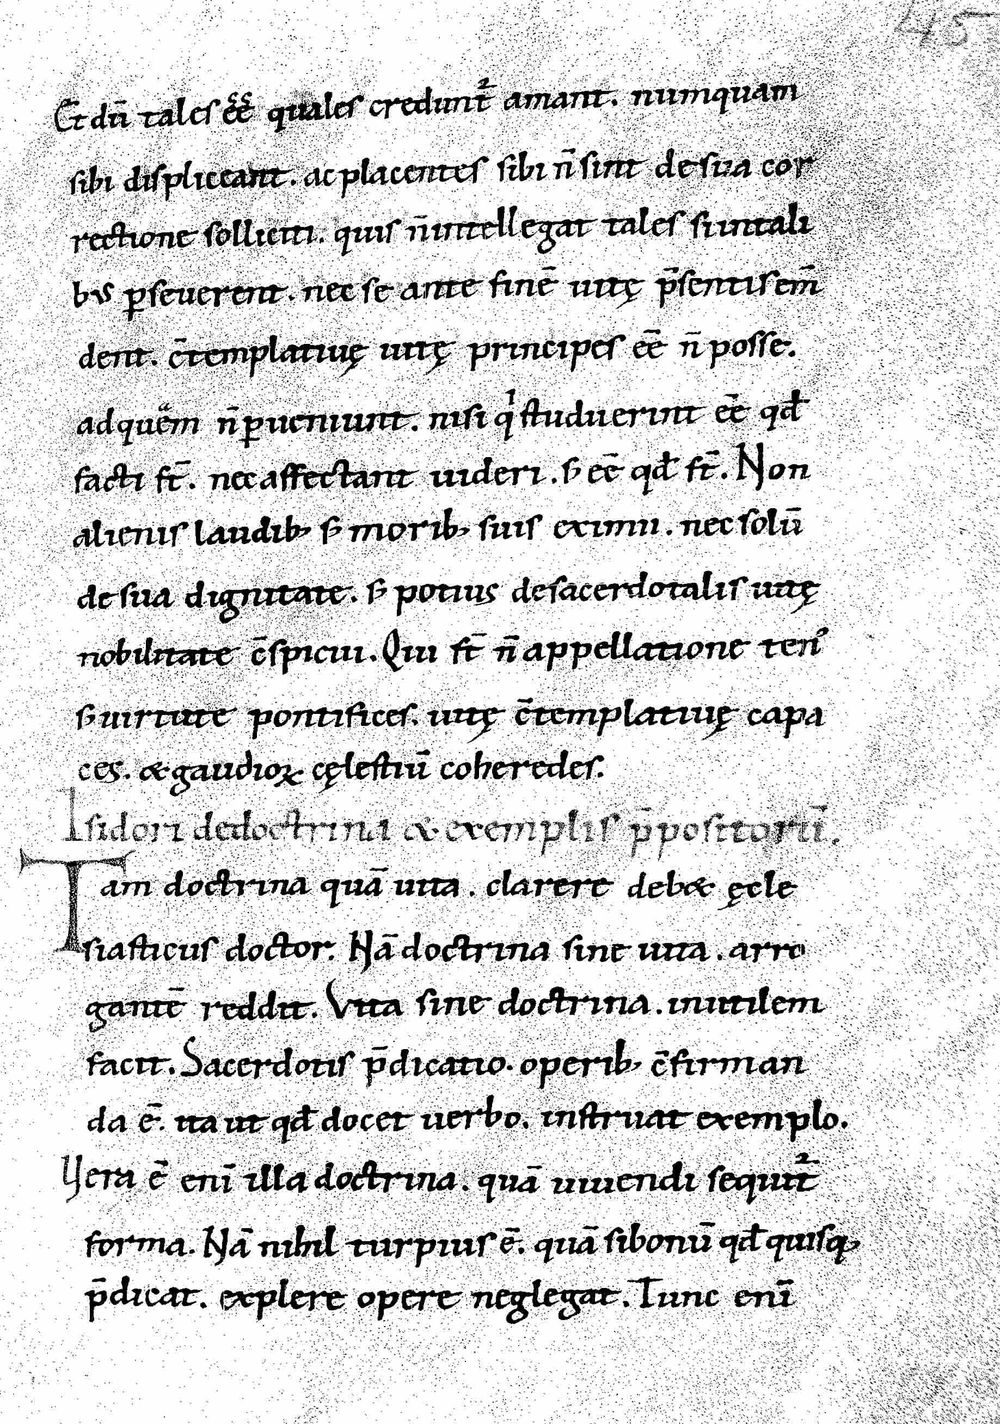 45
Et dū tales eēs̄s̄ quales credunt᷑ amant. numquam
sibi displiceant. ac placentes sibi n̄ sint de sua cor
rectione solliciti. quis n̄ intellegat tales si intali
bus ꝑseuerent. nec se ante finē uitę p̄sentis em̄
dent. c̄templatiuę uitę principes eē n̄ posse.
ad quē̄m n̄ ꝑueniunt. nisi qͥ studuerint eē qd̄
facti st̄. nec affectant uideri. s̄ eē qd̄ st̄. Non
alienis laudib; s̄ morib; suis eximii. nec solū
de sua dignitate. s̄ potius de sacerdotalis uitę
nobilitate c̄spicui. Qui st̄ n̄ appellatione ten᷒
s̄ uirtute pontifices. uitę c̄templatiuę capa
ces. & gaudioꝝ cęlestiū coheredes.
Isidori de doctrina & exemplis p̄positorū.
Tam doctrina quā uita. clarere deb& ęcle
siasticus doctor. Nā doctrina sine uita. arro
gantē reddit. Vita sine doctrina. inutilem
facit. Sacerdotis p̄dicatio. operib; c̄firman
da ē. ita ut qd̄ docet uerbo. instruat exemplo.
Vera ē enī illa doctrina. quā uiuendi sequit᷑
forma. Nā nihil turpius ē. quā si bonū qd̄ quisq;
p̄dicat. explere opere neglegat. Tunc enī